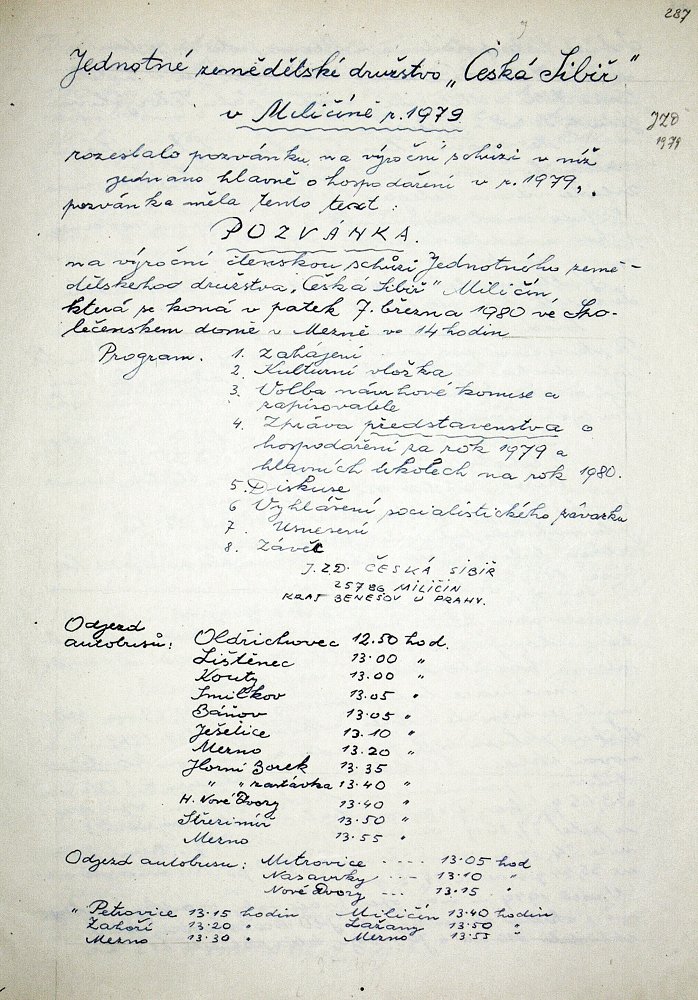 287
Jednotné zemědělské družstvo „Česká Sibiř"
v Miličíně r. 1979
JZD
1979
rozeslalo pozvánku na výroční schůzi v níž
jednáno hlavně o hospodaření v r. 1979,.
pozvánka měla tento text:
POZVÁNKA.
na výroční členskou schůzi Jednotného země-
dělského družstva „Česká Sibiř" Miličín,
která se koná v patek 7. března 1980 ve Spo-
lečenskem domě v Mezně ve 14 hodin
Program. 1. Zahájení
2. Kulturní vložka
3. Volba návrhové komise a
zapisovatele
4. Zpráva představenstva o
hospodáření za rok 1979 a
hlavních úkolech na rok 1980.
5. Diskuse
6 Vyhlášení socialistického závazku
7. Usnesení
8. Závěr
J.ZD. ČESKÁ SIBIŘ
25786 MILIČÍN
KRAJ BENEŠOV U PRAHY.
Odjezd
autobusů: Oldřichovec 12.50 hod.
Lištěnec 13.00 "
Kouty 13.00 "
Smilkov 13.05 "
Báňov 13.05 "
Ješetice 13.10 "
Mezno 13.20 "
Horní Borek 13.35
" " zastávka 13.40 "
H. Nové Dvory 13.40 "
Střezimíř 13.50 "
Mezno 13.55 "
Odjezd autobusu: Mitrovice ---- 13.05 hod
Nasavrky ---- 13.10 "
Nové Dvory --- 13.15 "
" Petrovice 13.15 hodin Miličín 13.40 hodin
Zahoří 13.20 " Lažany 13.50 "
Mezno 13.30 " Mezno 13.55 "